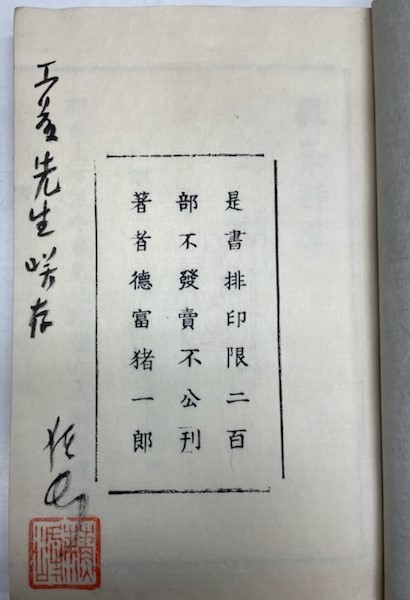 是書排印限二百
部不發賣不公刊
著者德富猪一郎
先生咲存